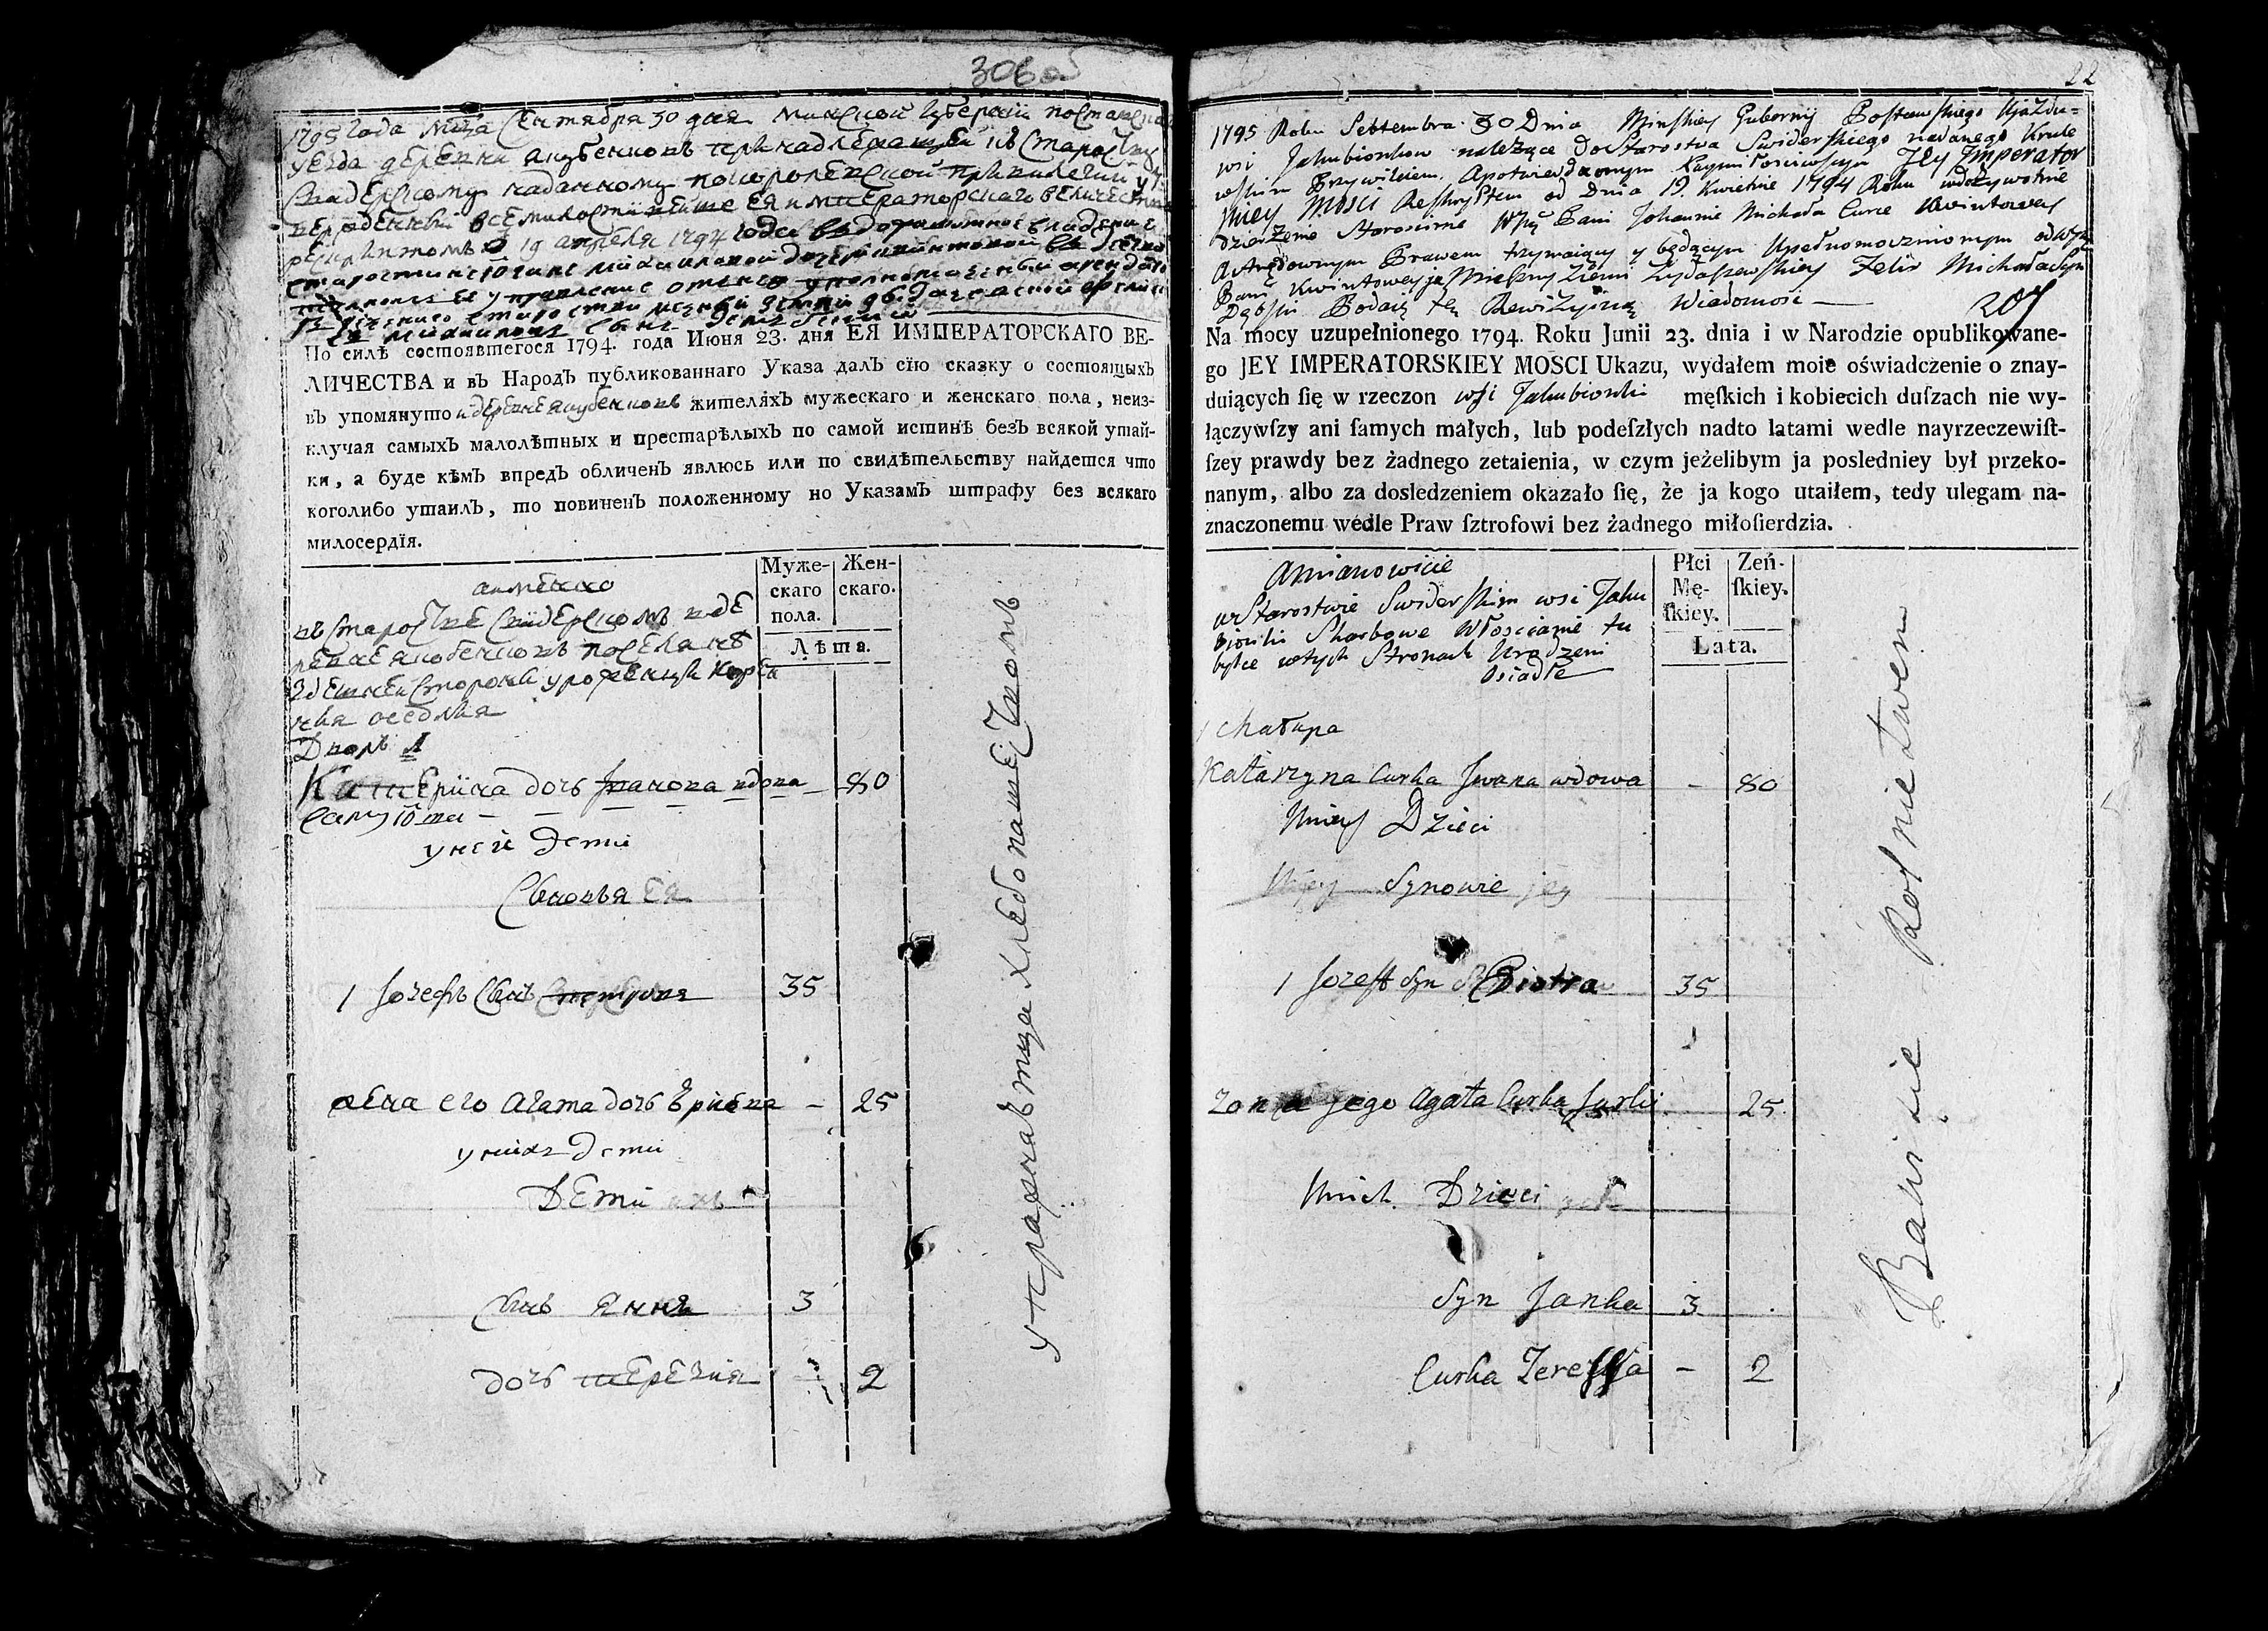 306 об
1795 года м̃ца Сентября 30 дня Минской Губернїи
уезда деревни Якубенковъ принадлежащей къ Старосту
Свидерскому наданному покоролевской привилегии
Ея императорскаго величества
рескриптомъ 19 апреля 1794 года
По силѣ состоявшегося 1794. года Июня 23. дня ЕЯ ИМПЕРАТОРСКАГО ВЕ-
ЛИЧЕСТВА и въ НародЪ публикованнаго Указа далЪ сїю сказку о состоящыхЪ
въ упомянуто деревне Якубенковъ жителяхЪ мужескаго и женскаго пола, неиз-
ключая самыхЪ малолѣтныхЪ и престарѣлыхЪ по самой истинѣ безЪ всякой утай-
ки, а буде кѣмЪ впредЪ обличенЪ явлюсь или по свидѣтельству найдется что
коголибо утаилЪ, то повиненЪ положенному но УказамЪ штрафу без всякаго
милосердїя.
Муже-скаго пола. Жен-скаго.
Лѣта.
аимѣнно
въ старостве Свидерскомъ вде
ревне Якобенковъ поселане
здешней стороны уроженцы
оседлыя
Дворъ 1
Катерїна дочь Iванова вдова - 80
унеи дети
Сыновья Ея
1 Iозефъ Сынъ Петрова 35
жена его Агата дочь - 25
унихъ дети
Дети ихъ
Сынъ Янка 3
дочь Терезия - 2
упражняѣтца хлебопашествомъ
22
1795 Roku Septembra 30 Dnia Minskiey Gubernij Postawskiego Ujazdu=
wsi Jakubionkow należące do Starostwa Swiderskiego nadanego Krule
wskim Przywileiem. Apotwierdzonym Naymiłościwszym Jey Imperator
skiey Mosci Reskryptem od Dnia 19 Kwietnia 1794 Roku wdożywotnie
Dzierżenie Starościnie Wżney Pani Johannie Michała Curce Kwintowey
Arędownym Prawem trzymaiący y będącym Upełnomocznionym od wżney
Pani Kwintowey ja Mieszny Ziemi Felix Michała Syn
Podaię tę Rewizyiną Wiadomość
207
Na mocy uzupełnionego 1794. Roku Junii 23. dnia i w Narodzie opublikowane-
go JEY IMPERATORSKIEY MOSCI Ukazu, wydałem moie oświadczenie o znay-
duiących ſię w rzeczon wsi Jakubionki męſkich i kobiecich duſzach nie wy-
łączywſzy ani ſamych małych, lub podeſzłych nadto latami wedle nayrzeczewiſt-
ſzey prawdy bez żadnego zetaienia, w czym jeżelibym ja posledniey był przeko-
nanym, albo za dosledzeniem okazało ſię, że ja kogo utaiłem, tedy ulegam na-
znaczonemu wedle Praw ſztrofowi bez żadnego miłoſierdzia.
Płci Mę-ſkiey. Zeń-ſkiey.
Lata.
Amianowicie
w Starostwie Swiderskim wsi Jaku
bionki Skarbowe Włoscianie tu
bylce wtych Stronach Urodzeni
Osiadłe
1 Chałupa
Katarzyna Curka Jwana wdowa - 80
Uniey Dzieci
Uniey Synowie jey
1 Jozeff Syn Piotra 35
Zona jego Agata Curka Jurki 25
Unich Dzieci
Syn Janka 3
Curka Teressa - 2
Bawi się Rolnictwem